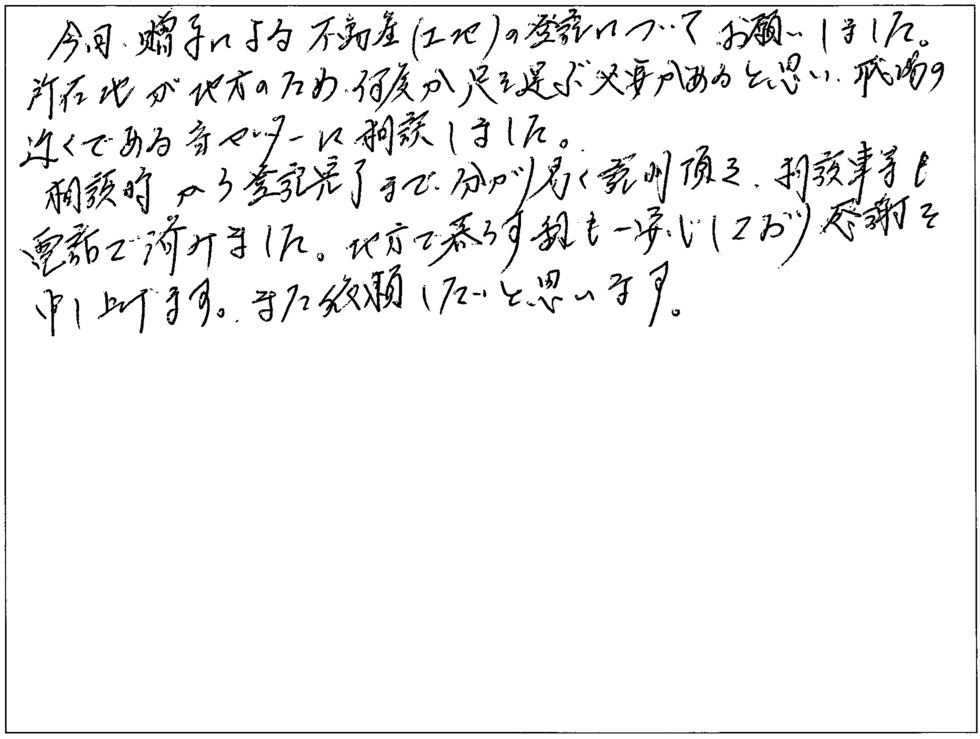 今回、贈与による不動産(土地)の登記についてお願いしました。
所在地が地方のため、何度か足を運ぶ必要があると思い、職場の
近くである当センターに相談しました。
相談時から登記完了まで、分かり易く説明頂き、相談事等も
電話で済みました。地方で暮らす親も一安心しており感謝を
申し上げます。また依頼したいと思います。